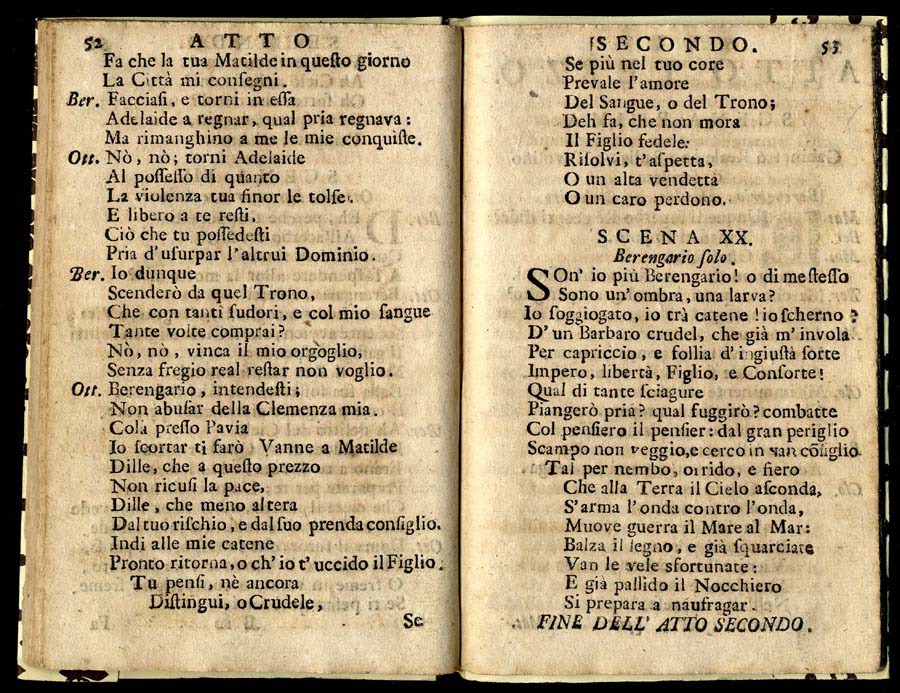 52 ATTO
Fa che la tua Matilde in queſto giorno
La Città mi conſegni.
Ber. Facciaſi, e torni in eſſa
Adelaide a regnar, qual pria regnava:
Ma rimanghino a me le mie conquiſte.
Ott. Nò, nò; torni Adelaide
Al poſſeſſo di quanto
La violenza tua finor le tolſe.
E libero a te reſti,
Ciò che tu poſſedeſti
Pria d'uſurpar l'altrui Dominio.
Ber. Io dunque
Scenderò da quel Trono,
Che con tanti ſudori, e col mio ſangue
Tante volte comprai?
Nò, nò, vinca il mio orgoglio,
Senza fregio real reſtar non voglio.
Ott. Berengario, intendeſti;
Non abuſar della Clemenza mia.
Colà preſſo Pavia
Io ſcortar ti farò Vanne a Matilde
Dille, che a queſto prezzo
Non ricuſi la pace,
Dille, che meno altera
Dal tuo riſchio, e dal ſuo prenda conſiglio.
Indi alle mie catene
Pronto ritorna, o ch'io t'uccido il Figlio.
Tu penſi, nè ancora
Diſtingui, o Crudele,
Se
SECONDO. 53
Se più nel tuo core
Prevale l'amore
Del Sangue, o del Trono;
Deh fa, che non mora
Il Figlio fedele:
Riſolvi, t'aſpetta,
O un alta vendetta
O un caro perdono.
SCENA XX.
Berengario ſolo.
SOn' io più Berengario! o di me ſteſſo
Sono un'ombra, una larva?
Io ſoggiogato, io trà catene! io ſcherno?
D'un Barbaro crudel, che già m'invola
Per capriccio, e follia d'ingiuſtà ſorte
Impero, libertà, Figlio, e Conſorte!
Qual di tante ſciagure
Piangerò prià? qual fuggirò? combatte
Col penſiero il penſier: dal gran periglio
Scampo non veggio, e cerco in van cõſiglio
Tal per nembo, orrido, e fiero
Che alla Terra il Cielo aſconda,
S'arma l'onda contro l'onda,
Muove guerra il Mare al Mar:
Balza il legno, e già ſquarciate
Van le vele sfortunate:
E già pallido il Nocchiero
Si prepara a naufragar.
FINE DELL' ATTO SECONDO.